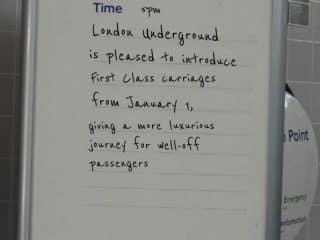 Time 5pm
London Underground
is pleased to introduce
First Class carriages
from January 1,
giving a more luxurious
journey for well-off
passengers
Point
Emergency
Information